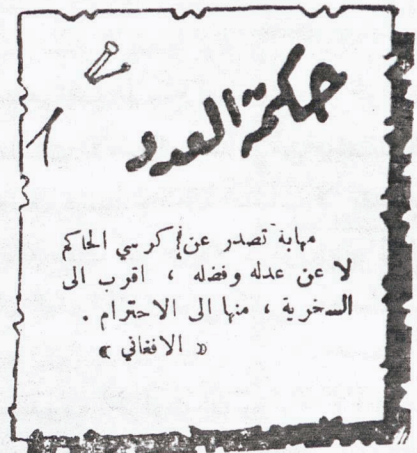 حكمة العدد
مهابة تصدر عن كرسي الحاكم
لا عن عدله وفضله ، اقرب الى
السخرية ، منها الى الاحترام .
« الافغاني »